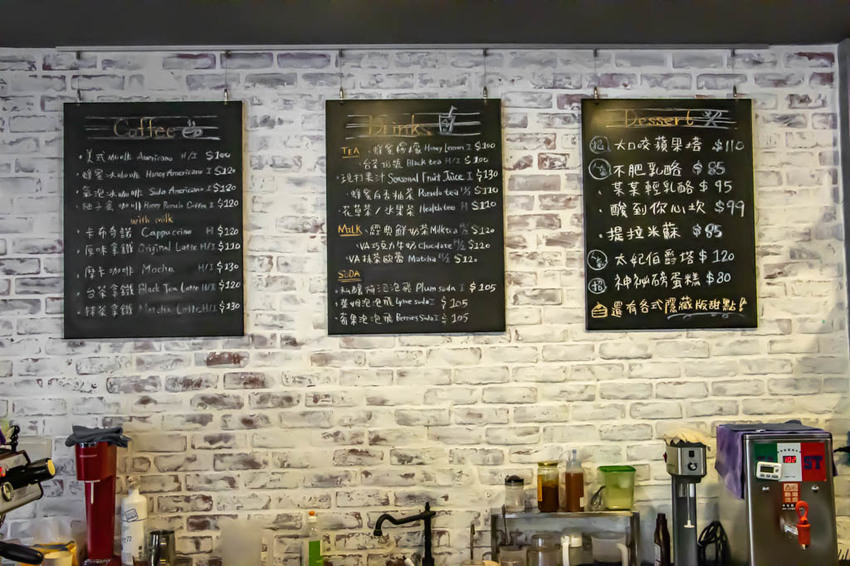 Coffee
美式 Americano H/I $100
Honey Americano I $120
Soda Americano I $120
Honey Pomelo Coffee I $120
with milk
卡布奇諾 Cappuccino H $120
原味拿鐵 Original Latte H/I $110
摩卡咖啡 Mocha H/I $130
台茶拿鐵 Black Tea Latte H/I $120
抹茶拿鐵 Matcha Latte H/I $130
Drinks
TEA 蜂蜜檸檬 Honey Lemon I $100
Black tea H I $100
現打果汁 Seasonal Fruit Juice I $130
蜂蜜白香柚茶 Pomelo tea H/I $110
花草茶/水果茶 Health tea H $120
MILK 經典鮮奶茶 Milk tea H/I $120
VA巧克力牛奶 Chocolate H/I $120
VA抹茶歐蕾 Matcha H/I $120
SODA
Plum soda I $105
萊姆泡泡飛 Lyme soda I $105
莓果泡泡飛 Berries Soda I $105
Dessert
大口咬蘋果塔 $110
不肥乳酪 $85
莱莱輕乳酪 $95
酸到你心坎 $99
提拉米蘇 $85
太妃伯爵塔 $120
神祕磅蛋糕 $80
還有各式隱藏版甜點!